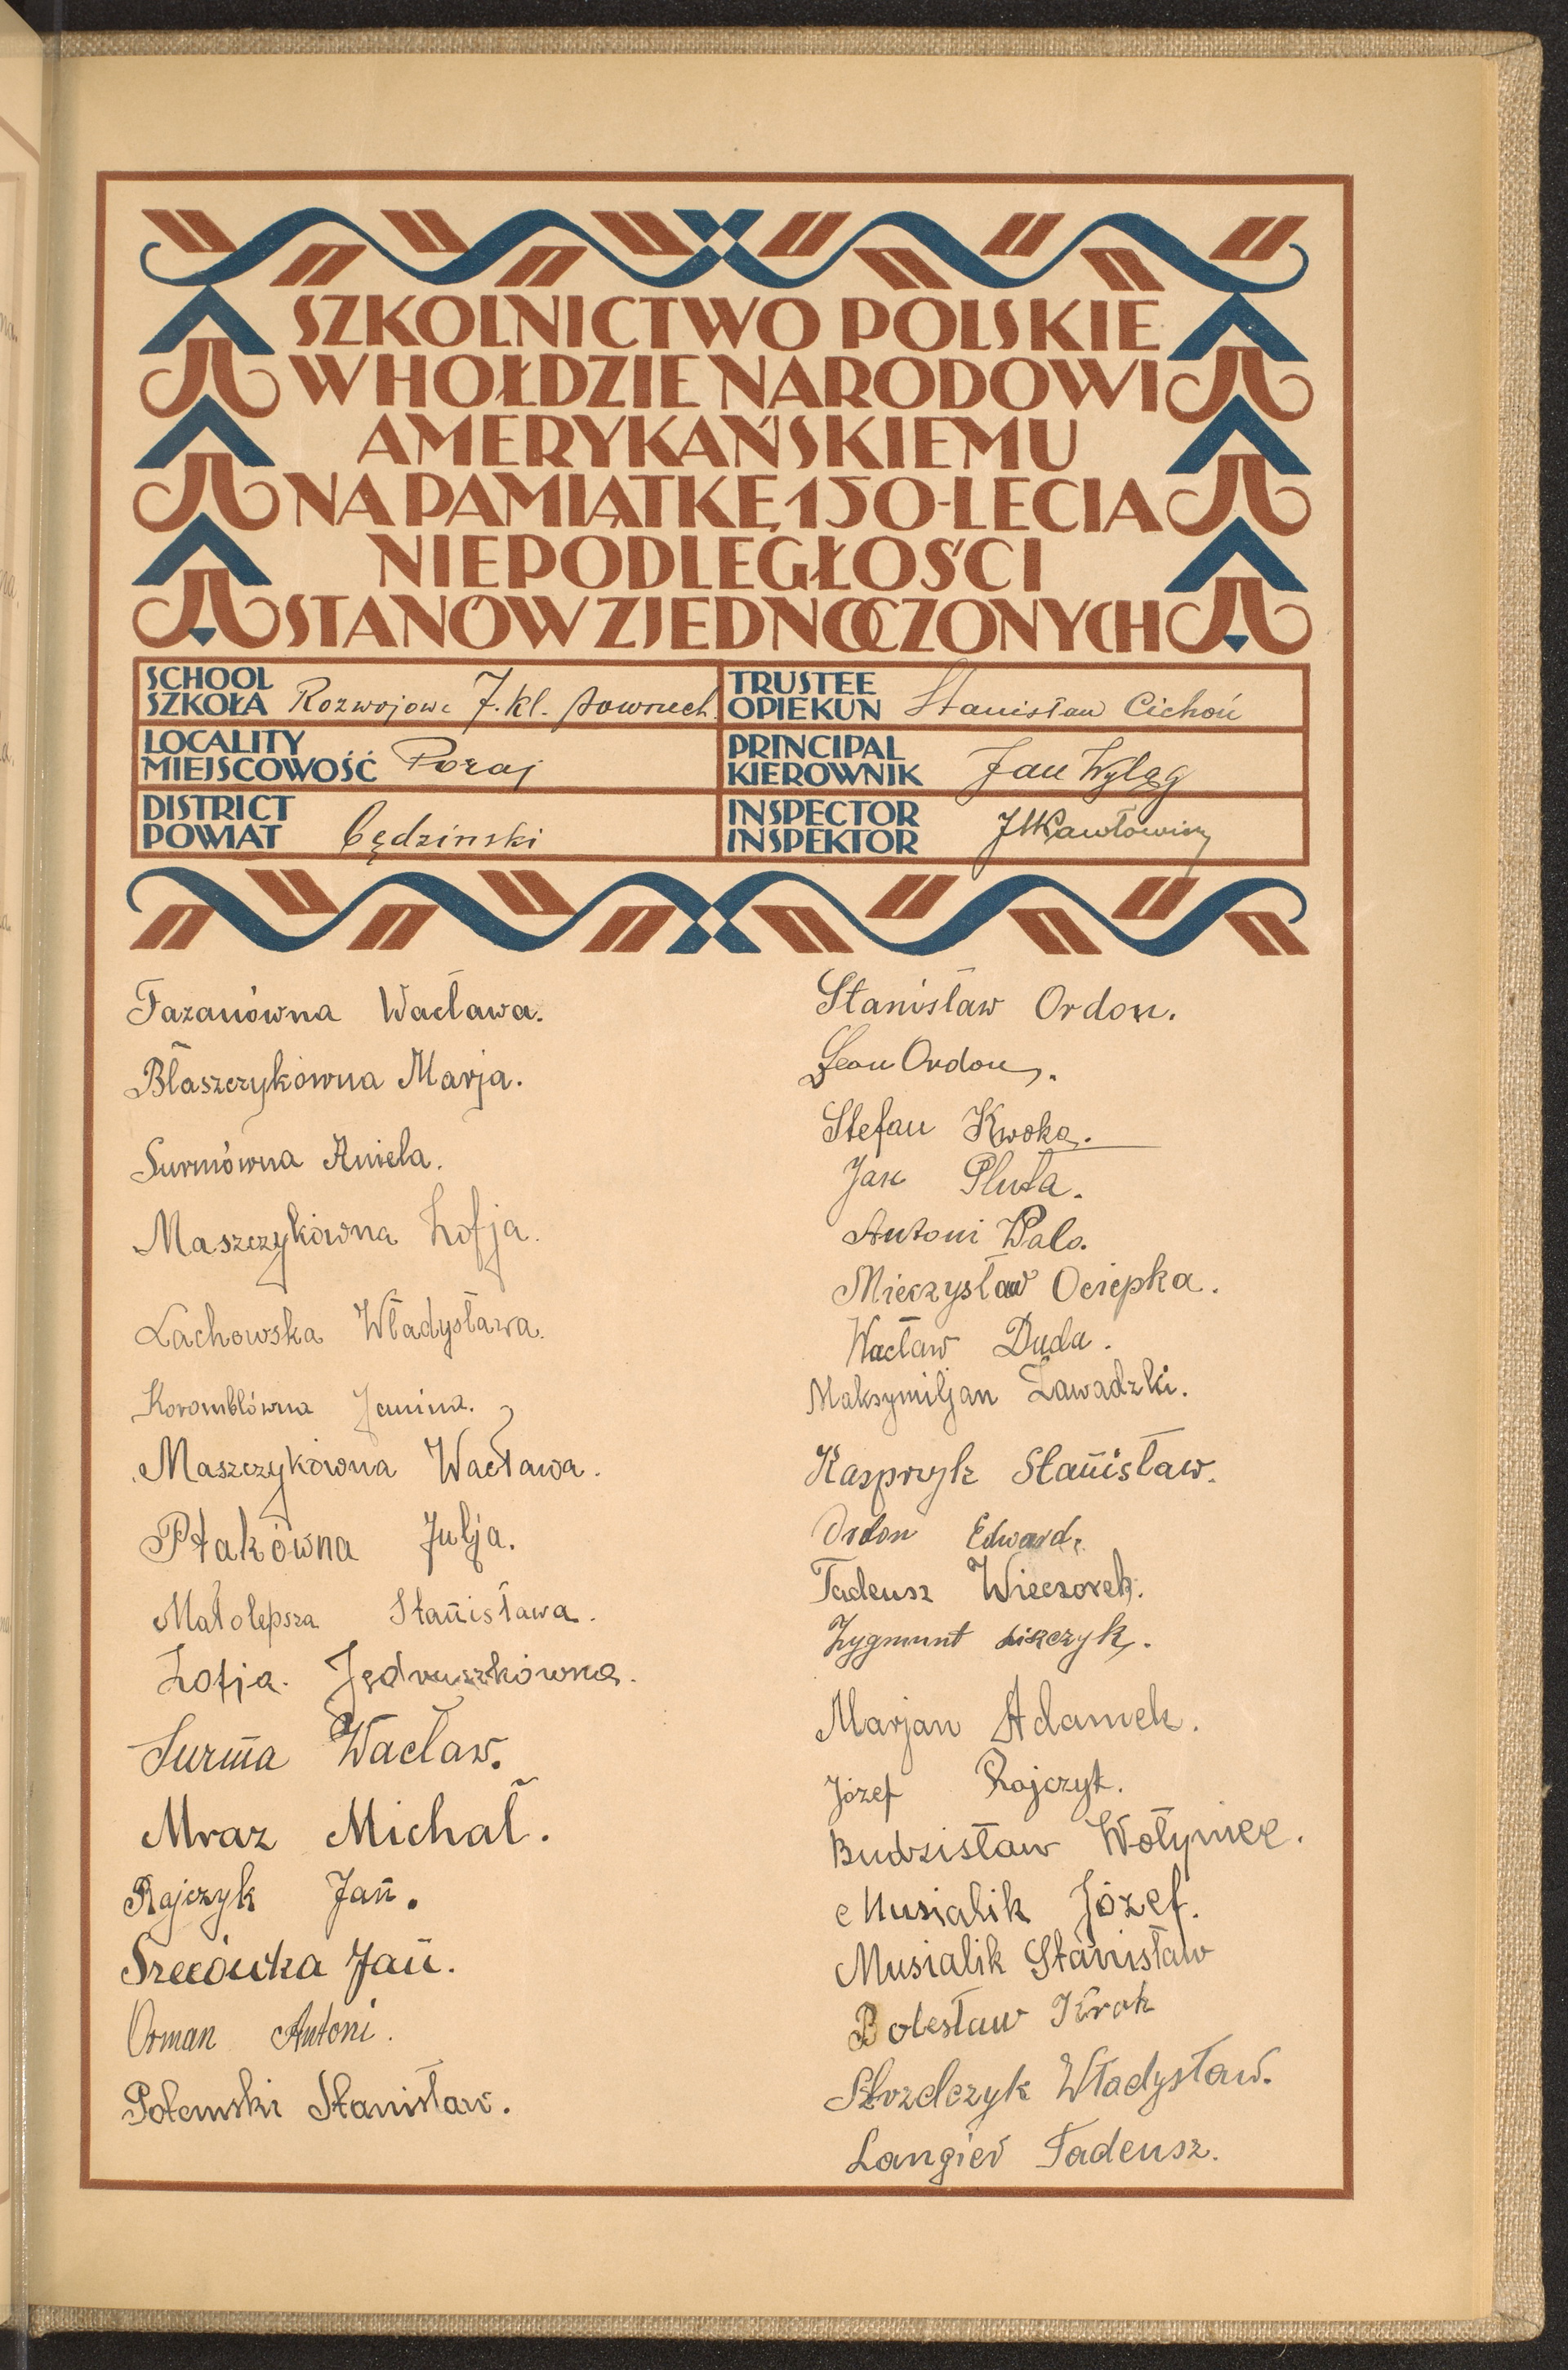 SZKOLNICTWO POLSKIE
W HOŁDZIE NARODOWI
AMERYKAŃSKIEMU
NA PAMIĄTKĘ 150-LECIA
NIEPODLEGŁOŚCI
STANÓW ZJEDNOCZONYCH
SCHOOL
SZKOŁA Rozwojowa 7. kl. powszech.
TRUSTEE
OPIEKUN Stanisław Cichoń
LOCALITY
MIEJSCOWOŚĆ Poraj
PRINCIPAL
KIEROWNIK Jan Wyląg
DISTRICT
POWIAT będzinski
INSPECTOR
INSPEKTOR
Fazanówna Wacława.
Błaszczykówna Marja.
Surmówna Aniela.
Maszczykówna Zofja.
Lachowska Władysława.
Koromblówna Janina.
Maszczykówna Wacława.
Ptakówna Julja.
Małolepsza Stanisława.
Zofja. Jędruszkówna.
Surma Wacław.
Mraz Michał.
Rajczyk Jan.
Jan.
Orman Antoni.
Połemski Stanisław.
Stanisław Ordon.
Leon Ordon.
Stefan Kwoka.
Jan Pluta.
Antoni Palo.
Mieczysław Ociepka.
Wacław Duda.
Maksymiljan Zawadzki.
Kasprzyk Stanisław.
Ordon Edward.
Tadeusz Wieczorek.
Zygmunt Liszczyk.
Marjan Adamek.
Józef Rajczyk.
Budzisław Wołyniec.
Musialik Józef.
Musialik Stanisław
Bolesław Krok
Władysław.
Langier Tadeusz.